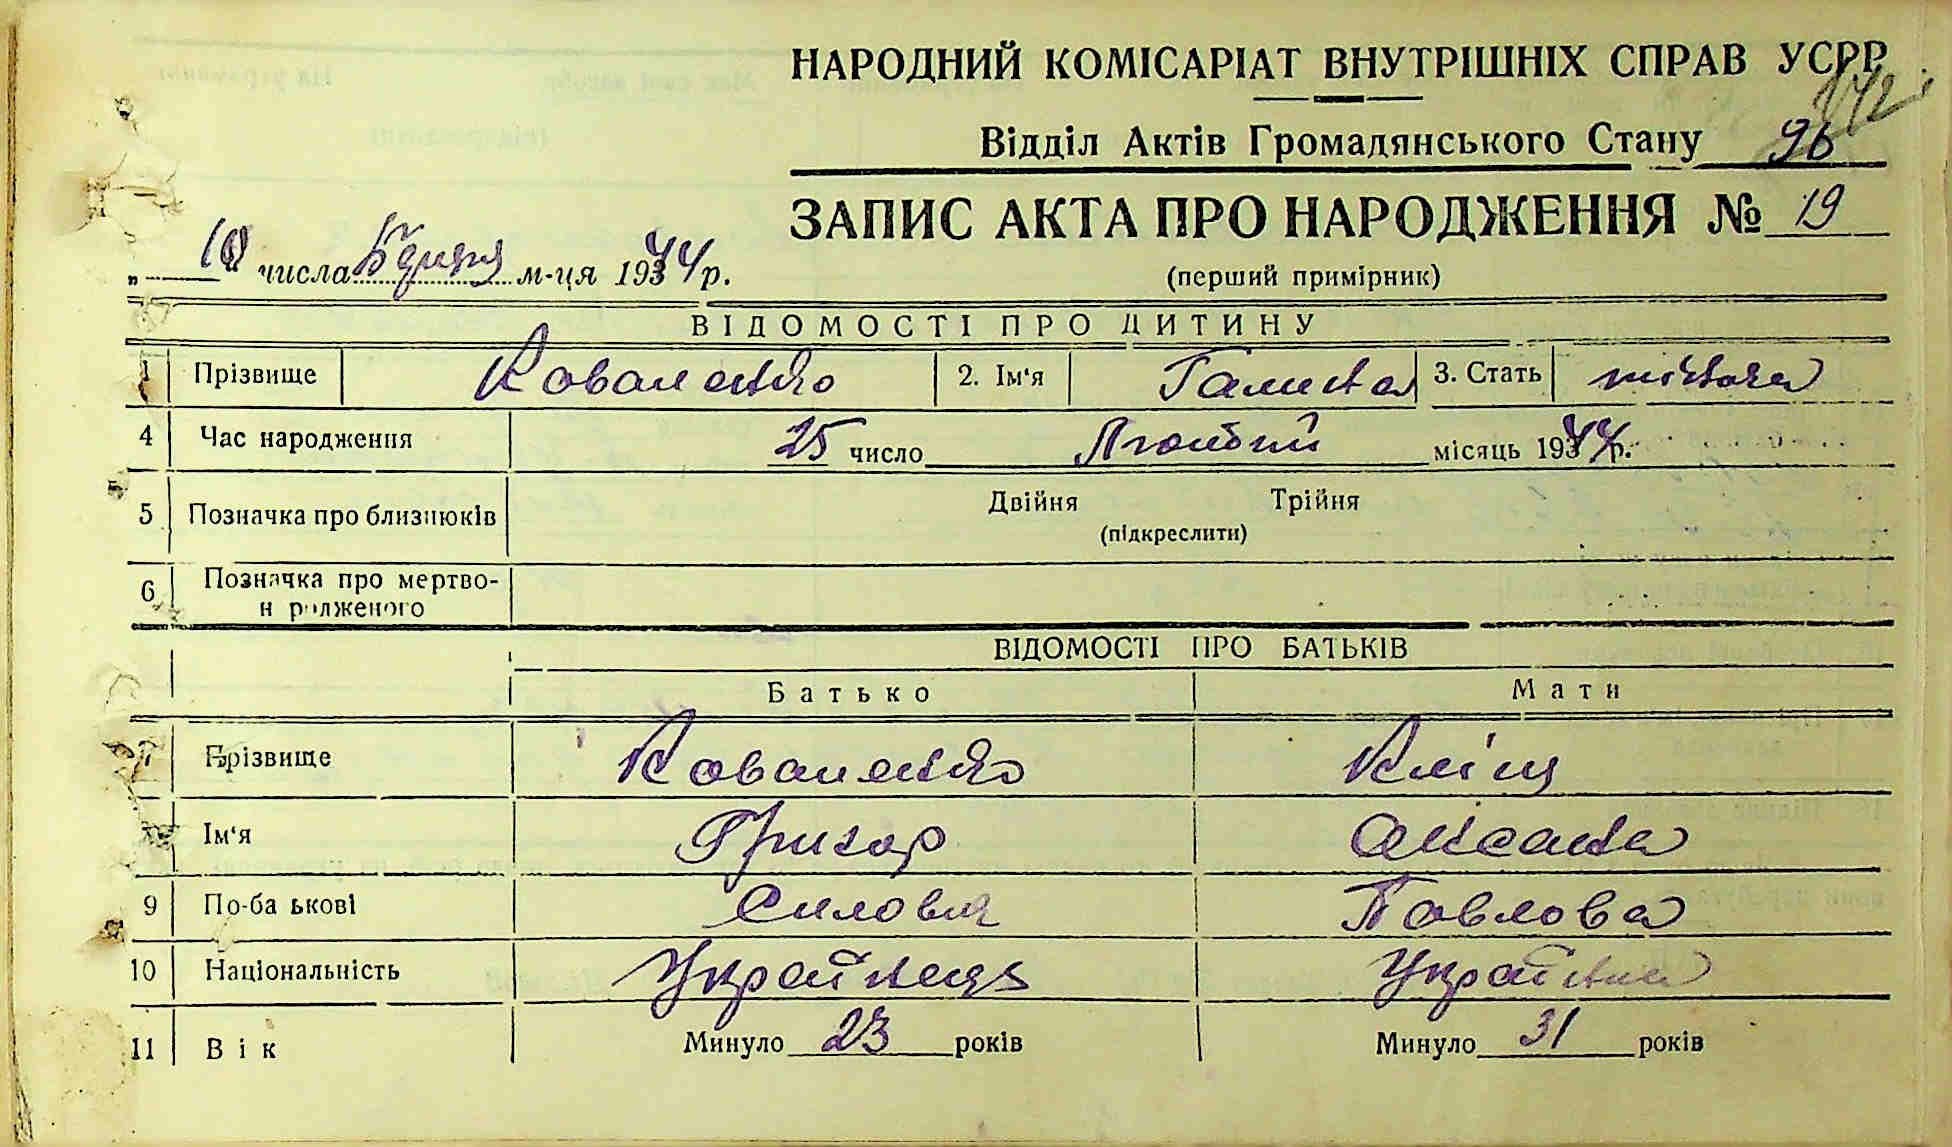 НАРОДНИЙ КОМІСАРІАТ ВНУТРІШНІХ СПРАВ УСРР
Відділ Актів Громадянського Стану 96
ЗАПИС АКТА ПРО НАРОДЖЕННЯ № 19
(перший примірник)
„ 10 числа м-ця 1944 р.
ВІДОМОСТІ ПРО ДИТИНУ
1 Прізвище Коваленко 2. Ім'я Галина 3. Стать жіноча
4 Час народження 25 число Лютий місяць 1944 р.
5 Позначка про близнюків Двійня Трійня
(підкреслити)
6 Позначка про мертво-
народженого
ВІДОМОСТІ ПРО БАТЬКІВ
Батько Мати
7 Прізвище Коваленко Кліщ
8 Ім'я Григор Оксана
9 По-батькові Силович Павлова
10 Національність Українець Українка
11 Вік Минуло 23 років Минуло 31 років